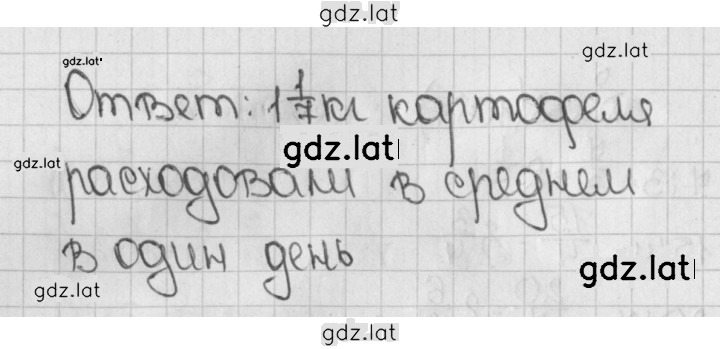 gdz.lat
gdz.lat
gdz.lat
Ответ: 1 1/7 кг картофеля
gdz.lat
gdz.lat
расходовали в среднем
в один день
gdz.lat
gdz.lat
gdz.lat